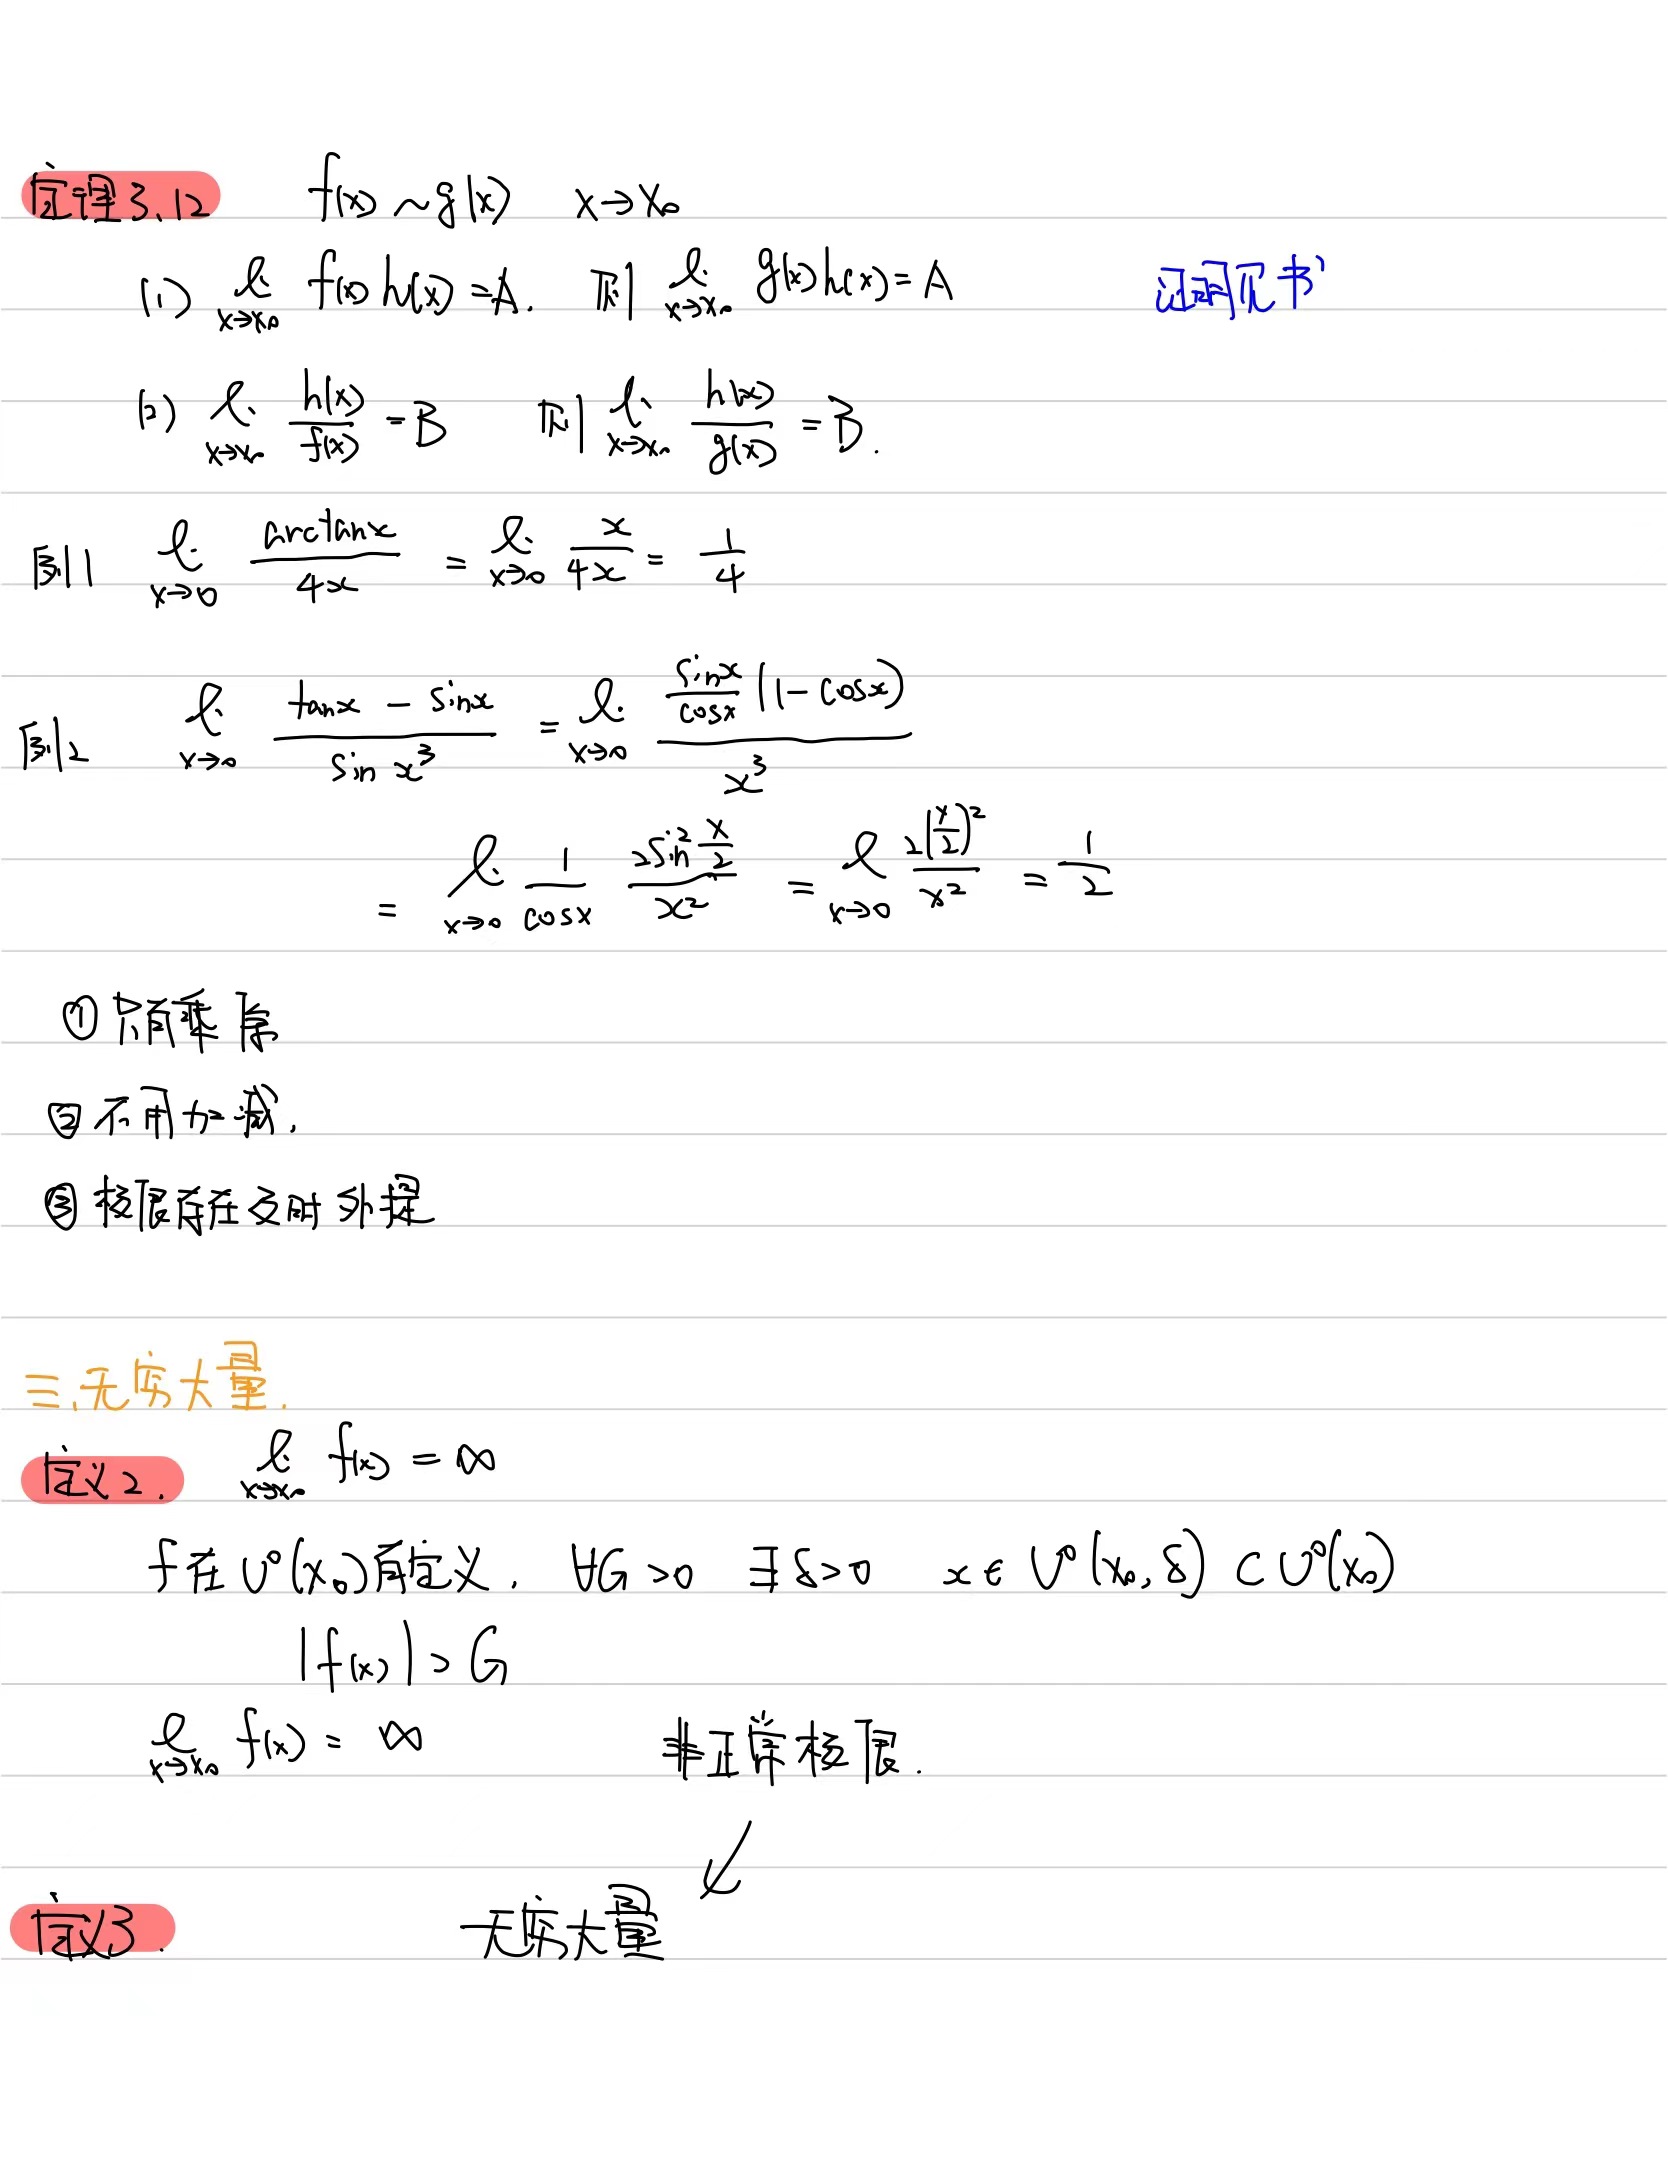 定理3.12 f(x) ~ g(x) x→x₀
(1) lim_{x→x₀} f(x)h(x) = A. 则 lim_{x→x₀} g(x)h(x) = A 证明见书
(2) lim_{x→x₀} h(x)/f(x) = B 则 lim_{x→x₀} h(x)/g(x) = B.
例1 lim_{x→0} arctanx/4x = lim_{x→0} x/4x = 1/4
例2 lim_{x→0} (tanx − sinx)/(sin x³) = lim_{x→0} ((sinx/cosx)(1−cosx))/x³
= lim_{x→0} 1/cosx · (2sin² x/2)/x² = lim_{x→0} 2(x/2)²/x² = 1/2
① 只有乘除
② 不用加减.
③ 极限存在及时外提
三、无穷大量.
定义2. lim_{x→x₀} f(x) = ∞
f在U°(x₀)有定义. ∀G>0 ∃δ>0 x∈U°(x₀,δ) ⊂ U°(x₀)
|f(x)| > G
lim_{x→x₀} f(x) = ∞ 非正常极限.
定义3. 无穷大量